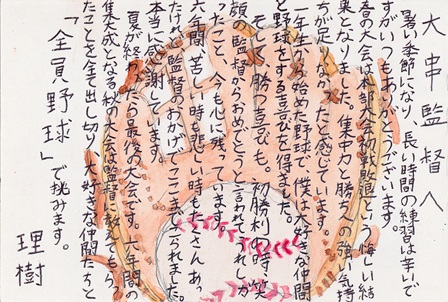 大串監督へ
暑い季節になり、長い時間の練習は辛いで
すがいつもありがとうございます。
春の大会は南部大会初戦敗退という悔しい結
果となりました。集中力と勝ちへの強い気持
ちが足りなかったと感じています。
一年生から始めた野球で、僕は大好きな仲間
と野球をする喜びを得ました。
そして、勝つ喜びも。初勝利の時、笑
顔の監督からおめでとうと言われてうれしか
ったこと、今も心に残っています。
六年間、苦しい時も悲しい時もたくさんあっ
たけれど監督のおかげでここまでこられました。
本当に感謝しています。
夏が終わる最後の大会です。六年間の
集大成となる秋の大会は監督に教えてもらっ
たことを全て出し切り、大好きな仲間たちと
「全員野球」で挑みます。
理樹